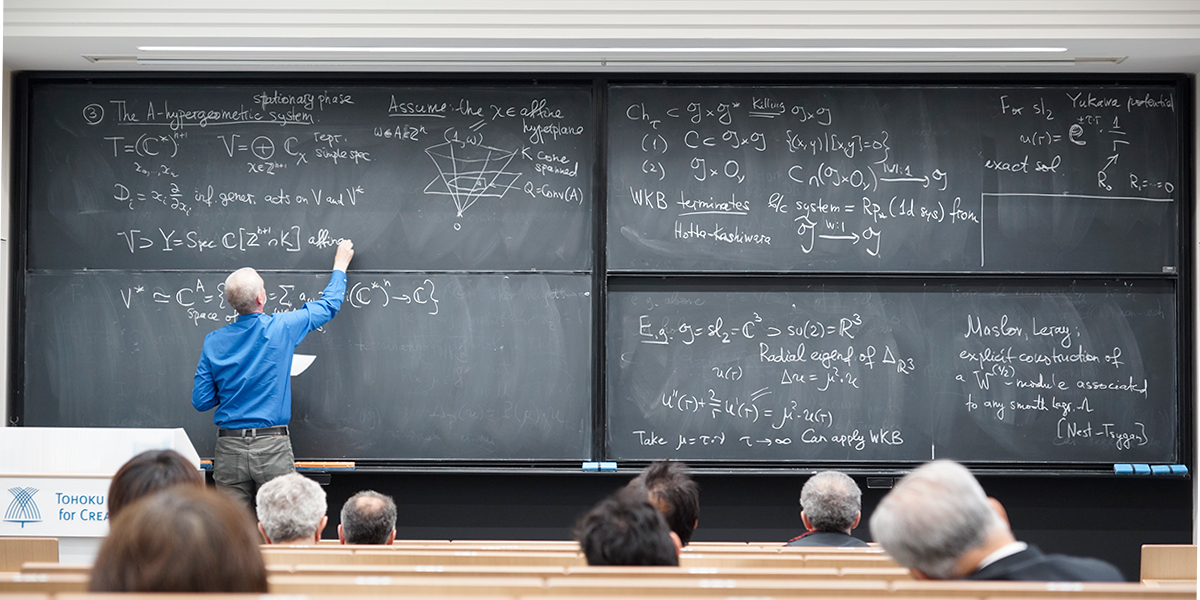 ③ The A-hypergeometric system.
stationary phase
T=(ℂ*)ⁿ⁺¹ V=⊕ ℂ_χ
χ∈ℤⁿ⁺¹
simple spec
Dᵢ=xᵢ ∂/∂xᵢ inf. gener. acts on V and V*
V⊃Y=Spec ℂ[ℤⁿ⁺¹∩K] affine
Assume: the χ∈ affine
hyperplane
ω∈A⊂ℤⁿ
(1,ω)
K cone
spanned
Q=Conv(A)
0
V*≃ℂᴬ={
(ℂ*)ⁿ→ℂ}
Space of
Ch_τ ⊂ g×g* Killing g×g
(1) C⊂g×g {(x,y)|[x,y]=0}
(2) g×O_ν C∩(g×O_ν) |W|:1 → g
WKB terminates h/c system = Rp_*(1d sys) from
Hotta-Kashiwara g̃ W:1 → g
For sl₂ Yukawa potential
u(r)=e^(±τ·r) 1/r
exact sol.
R₀ R₁=⋯=0
E.g. g=sl₂=ℂ³⊃su(2)=ℝ³
Radial eigenf of Δ_ℝ³
u(r) Δu=μ²·u
u''(r)+2/r u'(r)=μ²·u(r)
Take μ=τ·ν τ→∞ Can apply WKB
Maslov, Leray:
explicit construction of
a W^(1/2)-module associated
to any smooth Lagr. Λ
[Nest-Tsygan]
TOHOKU
for CREA